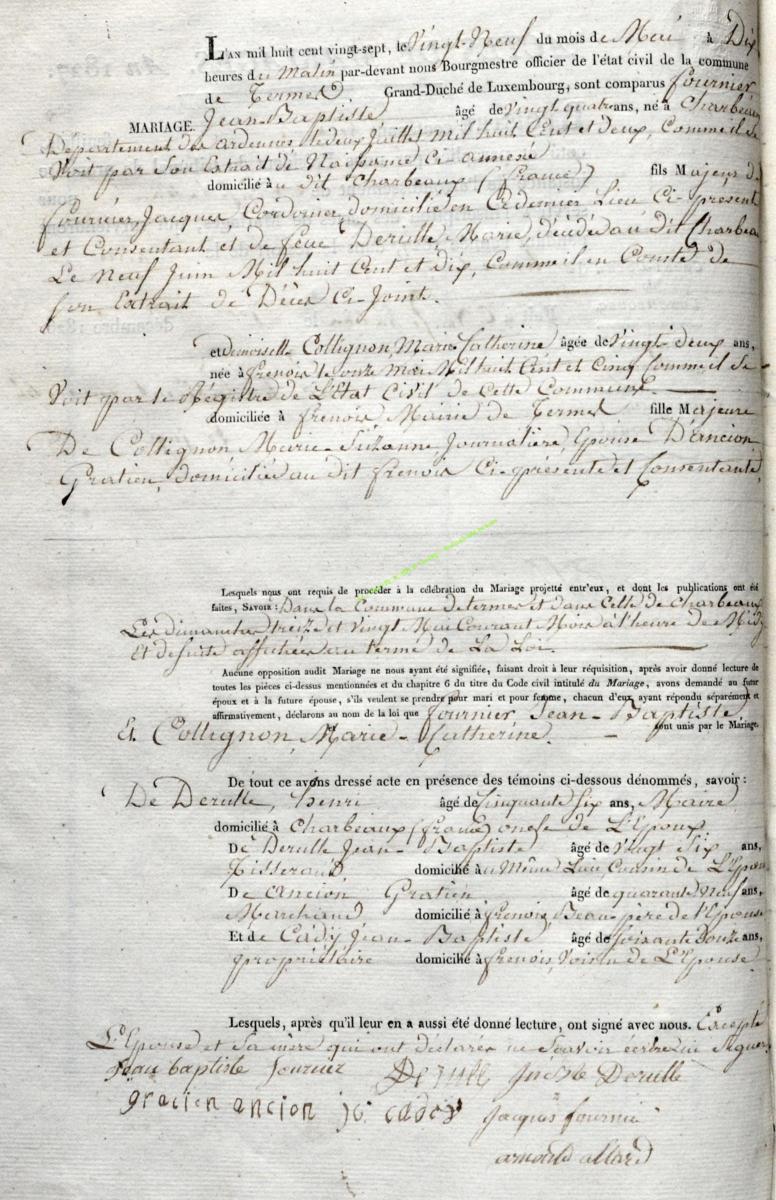 L'AN mil huit cent vingt-sept, le Vingt-Neuf du mois de Mai à Dix
heures du Matin par-devant nous Bourgmestre officier de l'état civil de la commune
de Termes Grand-Duché de Luxembourg, sont comparus fournier
MARIAGE. Jean-Baptiste âgé de Vingt quatre ans, né à Charbeaux
Departement des ardennes, le deux Juillet mil huit Cent et deux, Comme il Se
Voit par Son Extrait de Naissance Ci annexé
domicilié à au dit Charbeaux (france) fils Majeur de
fournier, Jacques Cordonier, domicilié en Ce dernier Lieu Ci-présent
et Consentant et de feue Derulle Marie, décédée au dit Charbeaux
Le Neuf Juin Mil huit Cent et dix, Comme il en Conste de
Son Extrait de Décès Ci-Joint.
et demoiselle Collignon, Marie-Catherine âgée de Vingt-deux ans,
née à frenois le onze Mai Mil huit Cent et Cinq Comme il Se
Voit par le Régistre de L'Etat Civil de Cette Commune.
domiciliée à frenois Mairie de Termes fille Majeure
De Collignon Marie-Suzanne Journalière, Epouse D'ancion
Gratien, domiciliés au dit frenois Ci-présente et Consentante,
Lesquels nous ont requis de procéder à la célébration du Mariage projetté entr'eux, et dont les publications ont été
faites, SAVOIR : Dans la Commune de termes et dans Celle de Charbeaux
Les dimanches treize et vingt Mai Courant Mois à l'heure de Midy
Et de suite affichées au terme de La Loi.
Aucune opposition audit Mariage ne nous ayant été signifiée, faisant droit à leur réquisition, après avoir donné lecture de
toutes les pièces ci-dessus mentionnées et du chapitre 6 du titre du Code civil intitulé du Mariage, avons demandé au futur
époux et à la future épouse, s'ils veulent se prendre pour mari et pour femme, chacun d'eux ayant répondu séparément et
affirmativement, déclarons au nom de la loi que fournier, Jean-Baptiste
Et Collignon, Marie-Catherine. sont unis par le Mariage.
De tout ce avons dressé acte en présence des témoins ci-dessous dénommés, savoir :
De Derulle, henri âgé de Cinquante Six ans, Maire
domicilié à Charbeaux (france) oncle de L'Epoux.
De Derulle Jean-Baptiste âgé de Vingt Six ans,
Tisserand, domicilié au Même Lieu Cousin de L'Epoux
De ancion Gratien âgé de quarante Neuf ans,
Marchand, domicilié à frenois, Beau-père de l'Epouse
Et de Cady Jean-Baptiste âgé de soixante douze ans,
propriétaire domicilié à frenois, Voisin de L'Epouse
Lesquels, après qu'il leur en a aussi été donné lecture, ont signé avec nous. Excepté
L'Epouse et Sa mère qui ont déclarés ne Savoir écrire ni Signer
Jean baptiste fournier Derulle Derulle
gracien ancion Jacques fournier
arnould allard